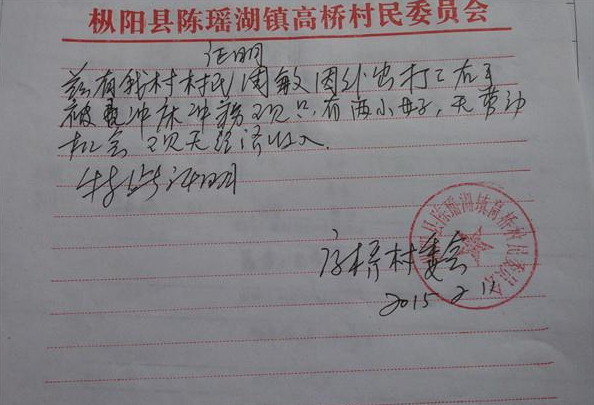 枞阳县陈瑶湖镇高桥村民委员会
证明
兹有我村村民周敏因外出打工右手
被冲床冲 现只有两小母子，无劳动
机会 现无经济收入.
特此证明
高桥村委会
2015 2
县陈瑶湖镇高桥村民委员会